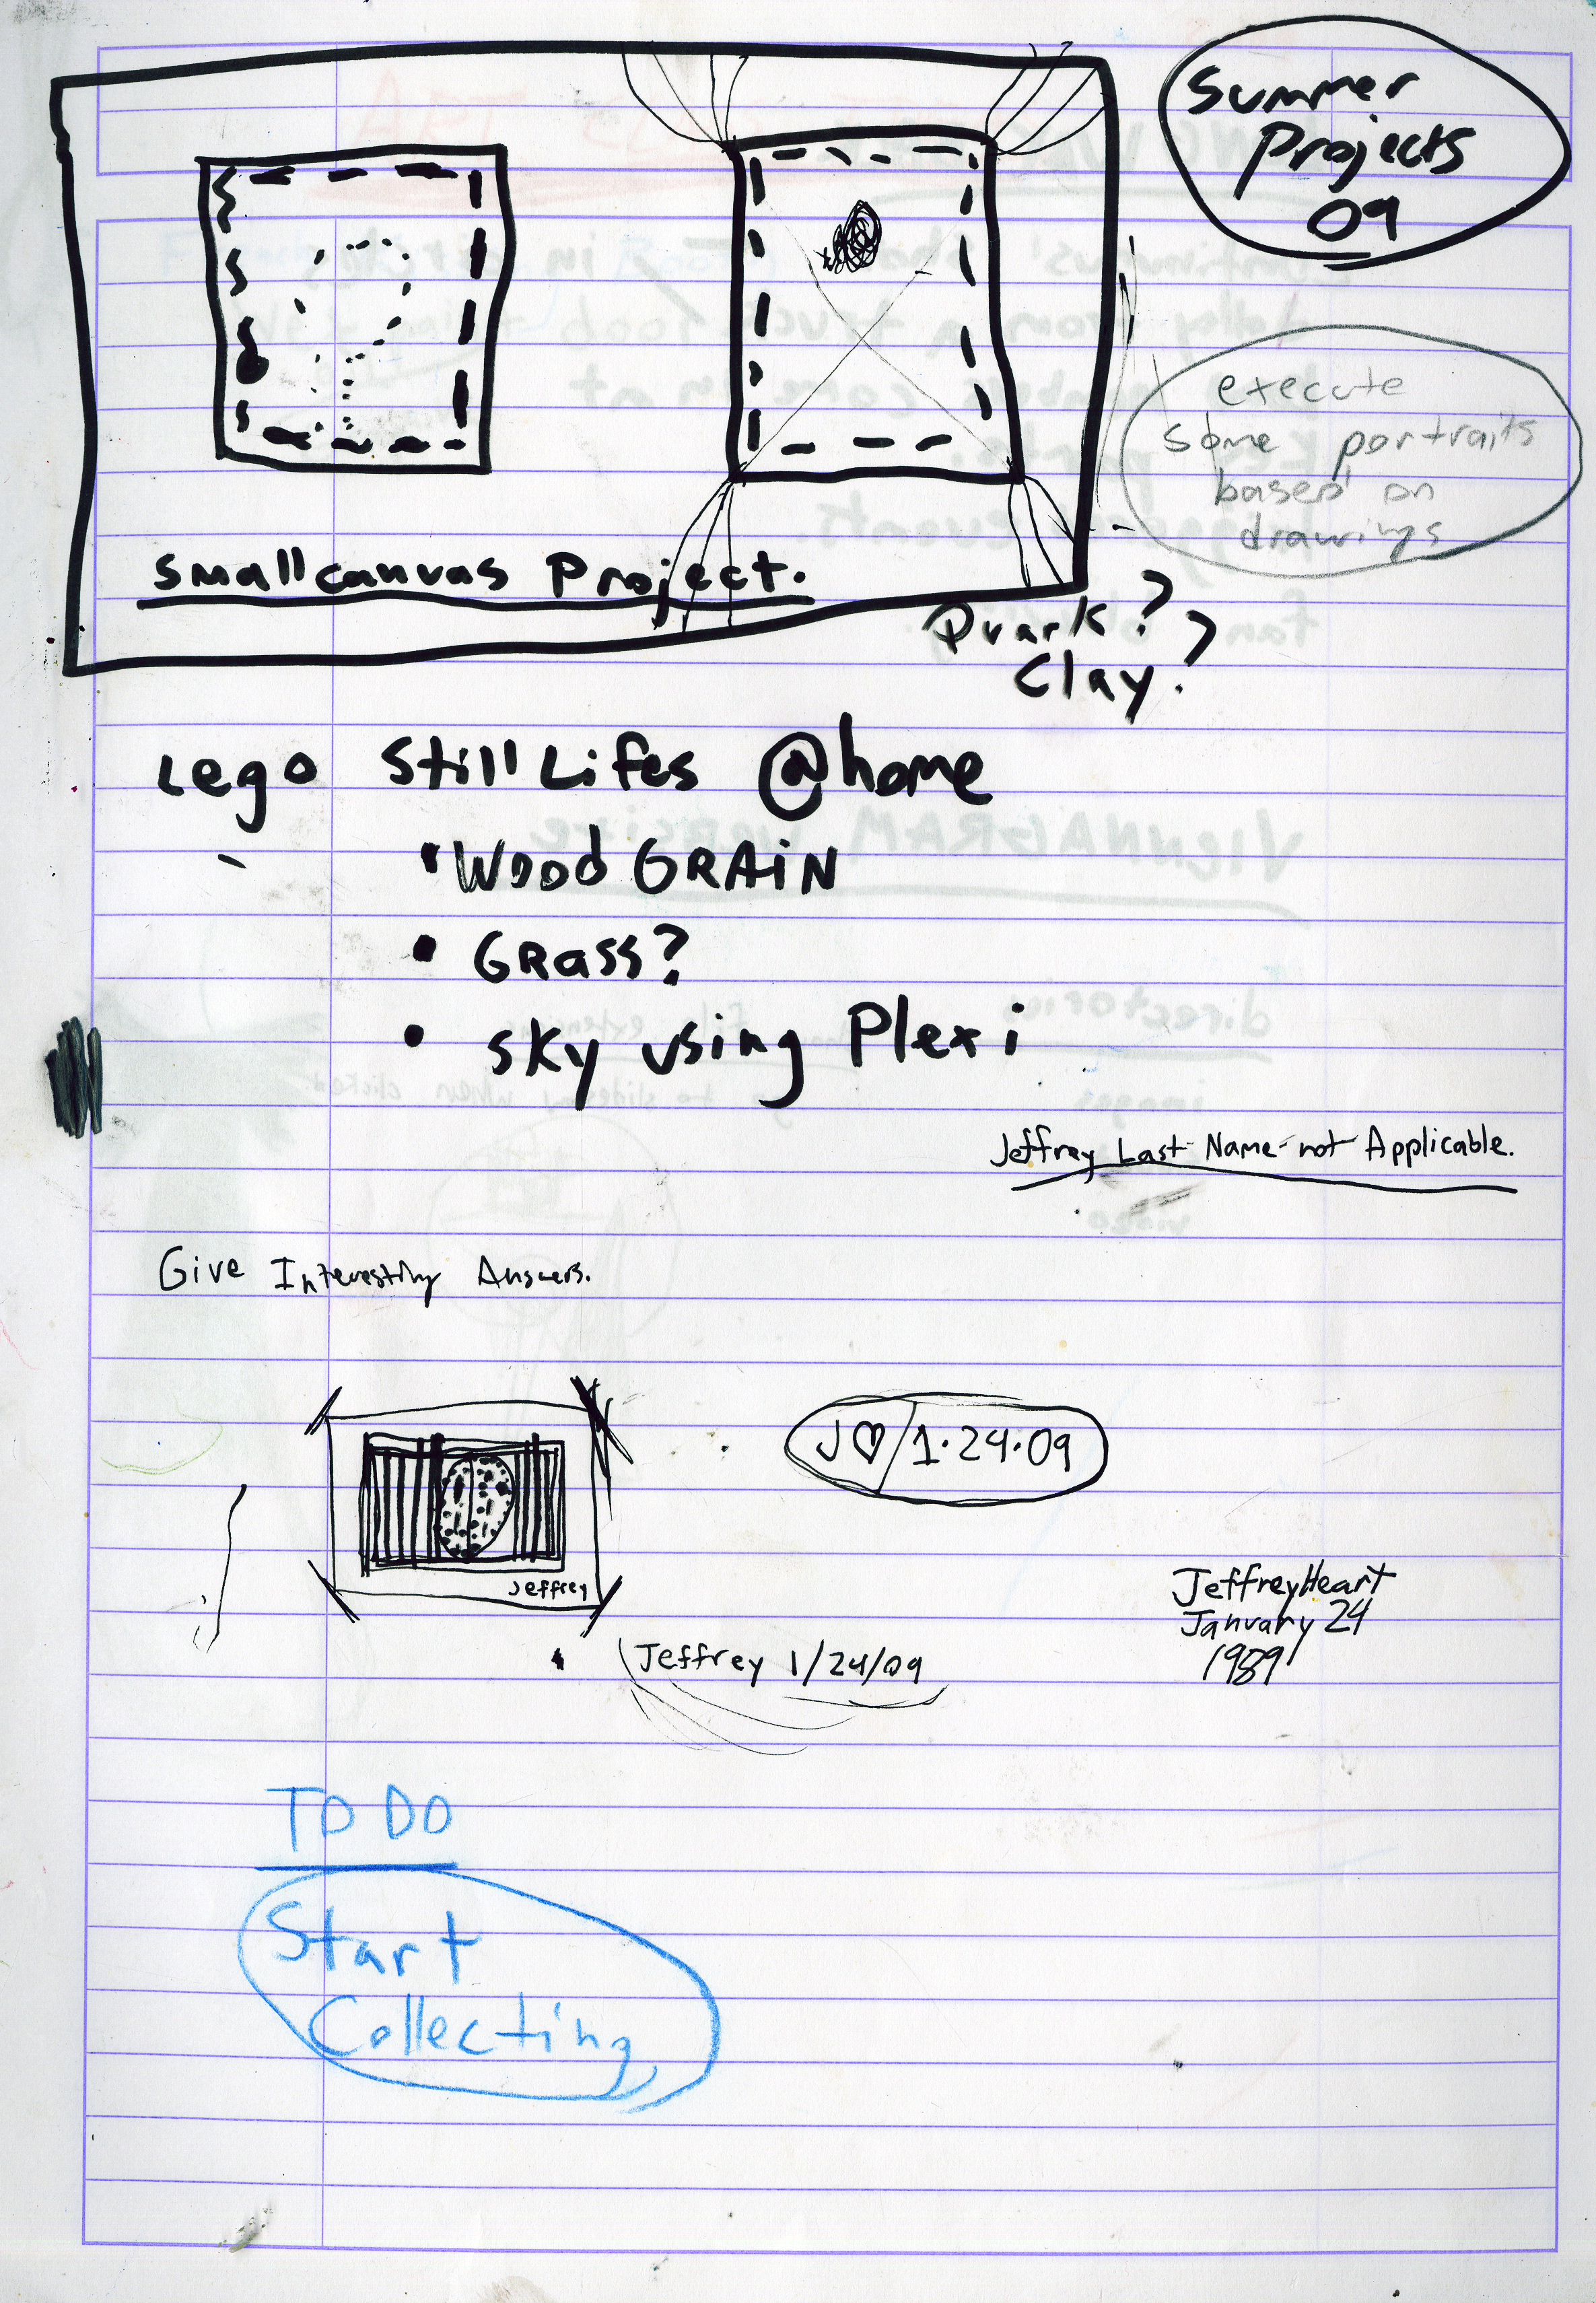 Summer
Projects
09
execute
some portraits
based on
drawings
Small canvas Project.
?
Clay?
Lego Still Lifes @home
• Wood GRAIN
• GRass?
• sky using Plexi
Jeffrey Last Name not Applicable.
Give Interesting Answers.
J♡/1.24.09
Jeffrey
Jeffrey Heart
January 24
1989
Jeffrey 1/24/09
TO DO
Start
Collecting